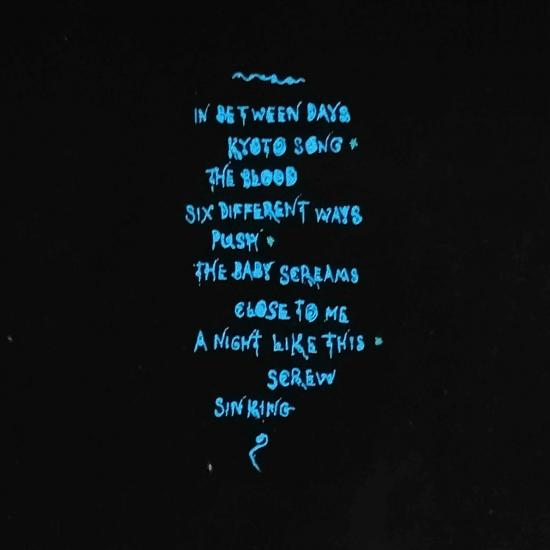 IN BETWEEN DAYS
KYOTO SONG *
THE BLOOD
SIX DIFFERENT WAYS
PUSH *
THE BABY SCREAMS
CLOSE TO ME
A NIGHT LIKE THIS *
SCREW
SINKING